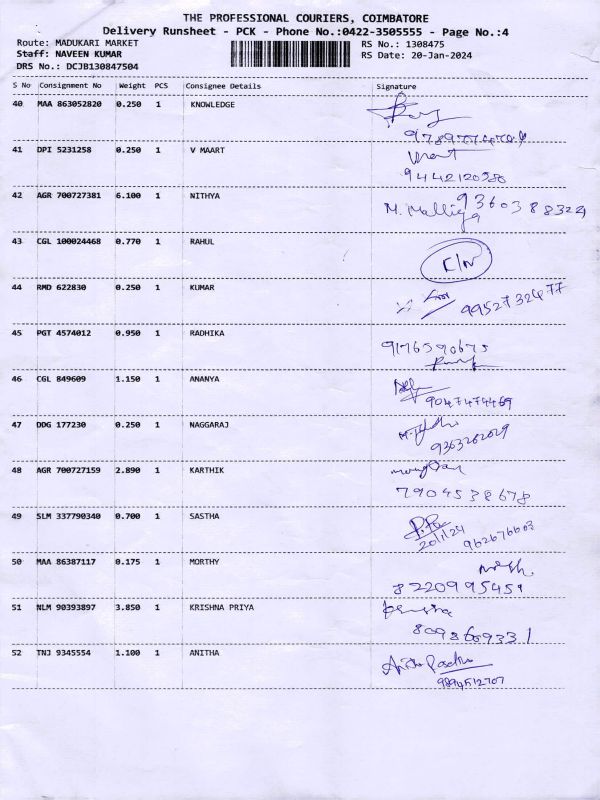 THE PROFESSIONAL COURIERS, COIMBATORE
Delivery Runsheet - PCK - Phone No.:0422-3505555 - Page No.:4
Route: MADUKARI MARKET
RS No.: 1308475
Staff: NAVEEN KUMAR
RS Date: 20-Jan-2024
DRS No.: DCJB130847504
S No Consignment No Weight PCS Consignee Details Signature
40 MAA 863052820 0.250 1 KNOWLEDGE
41 DPI 5231258 0.250 1 V MAART
9442120580
42 AGR 700727381 6.100 1 NITHYA M. Malliga 9360388324
43 CGL 100024468 0.770 1 RAHUL
44 RMD 622830 0.250 1 KUMAR 9952732477
45 PGT 4574012 0.950 1 RADHIKA 9176590675
46 CGL 849609 1.150 1 ANANYA
9047474469
47 DDG 177230 0.250 1 NAGGARAJ
9363262029
48 AGR 700727159 2.890 1 KARTHIK
7904538678
49 SLM 337790340 0.700 1 SASTHA
20/1/24 962676603
50 MAA 86387117 0.175 1 MORTHY
8220995451
51 NLM 90393897 3.850 1 KRISHNA PRIYA
8098669331
52 TNJ 9345554 1.100 1 ANITHA Anitha
9894512707